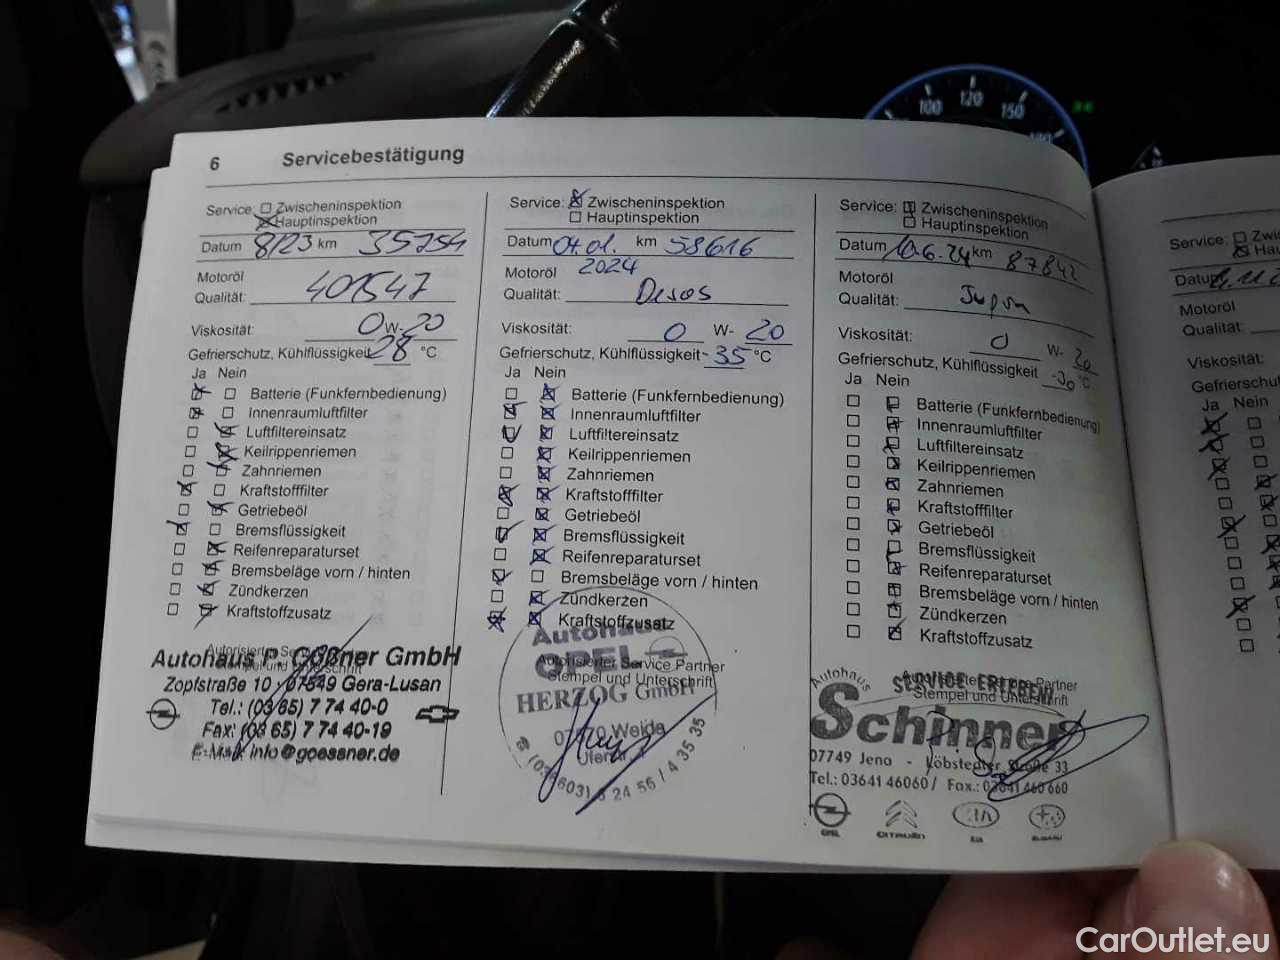 100 120 150
6 Servicebestätigung
Service: Zwischeninspektion
Hauptinspektion
Datum 8/23 km 35754
Motoröl
Qualität: 401547
Viskosität: 0 W- 20
Gefrierschutz, Kühlflüssigkeit 28 °C
Ja Nein
Batterie (Funkfernbedienung)
Innenraumluftfilter
Luftfiltereinsatz
Keilrippenriemen
Zahnriemen
Kraftstofffilter
Getriebeöl
Bremsflüssigkeit
Reifenreparaturset
Bremsbeläge vorn / hinten
Zündkerzen
Kraftstoffzusatz
Autohaus P. Gößner GmbH
Zopfstraße 10 · 07549 Gera-Lusan
Tel.: (03 65) 7 74 40-0
Fax: (03 65) 7 74 40-19
E-Mail: info@goessner.de
Service: Zwischeninspektion
Hauptinspektion
Datum 04.01. km 58616
2024
Motoröl
Qualität:
Viskosität: 0 W- 20
Gefrierschutz, Kühlflüssigkeit -35 °C
Ja Nein
Batterie (Funkfernbedienung)
Innenraumluftfilter
Luftfiltereinsatz
Keilrippenriemen
Zahnriemen
Kraftstofffilter
Getriebeöl
Bremsflüssigkeit
Reifenreparaturset
Bremsbeläge vorn / hinten
Zündkerzen
Kraftstoffzusatz
Autohaus
Autorisierter Service Partner
OPEL
Stempel und Unterschrift
HERZOG GmbH
07570 Weida
(036603) 6 24 56 / 4 35 35
Service: Zwischeninspektion
Hauptinspektion
Datum 10.6.24 km 87842
Motoröl
Qualität:
Viskosität: 0 W- 20
Gefrierschutz, Kühlflüssigkeit -30 °C
Ja Nein
Batterie (Funkfernbedienung)
Innenraumluftfilter
Luftfiltereinsatz
Keilrippenriemen
Zahnriemen
Kraftstofffilter
Getriebeöl
Bremsflüssigkeit
Reifenreparaturset
Bremsbeläge vorn / hinten
Zündkerzen
Kraftstoffzusatz
Autorisierter Service Partner
Stempel und Unterschrift
Autohaus
SERVICE ERLEBEN!
Schinner
07749 Jena - Löbstedter Straße 33
Tel.: 03641 46060 / Fax.: 03641 460 660
OPEL CITROËN KIA SUBARU
Service: Zwi
Hau
Datum
Motoröl
Qualität:
Viskosität:
Gefrierschu
Ja Nein
CarOutlet.eu